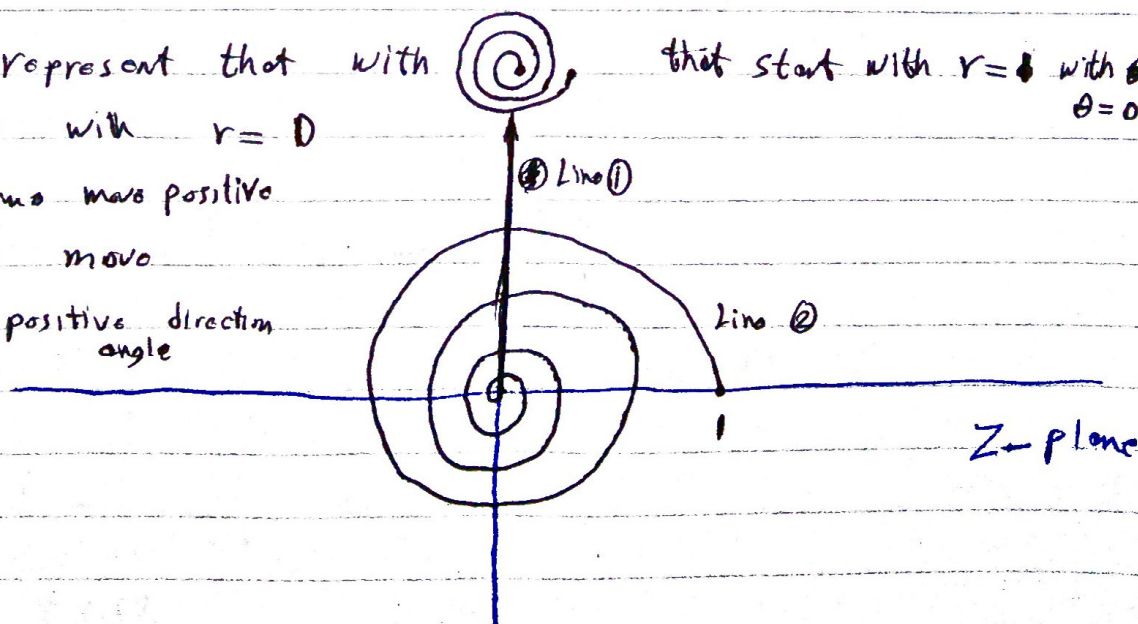 represent that with that start with r= with
θ=0
with r= 0
move positive
① Line ①
move
positive direction
angle
Line ②
1
Z-plane